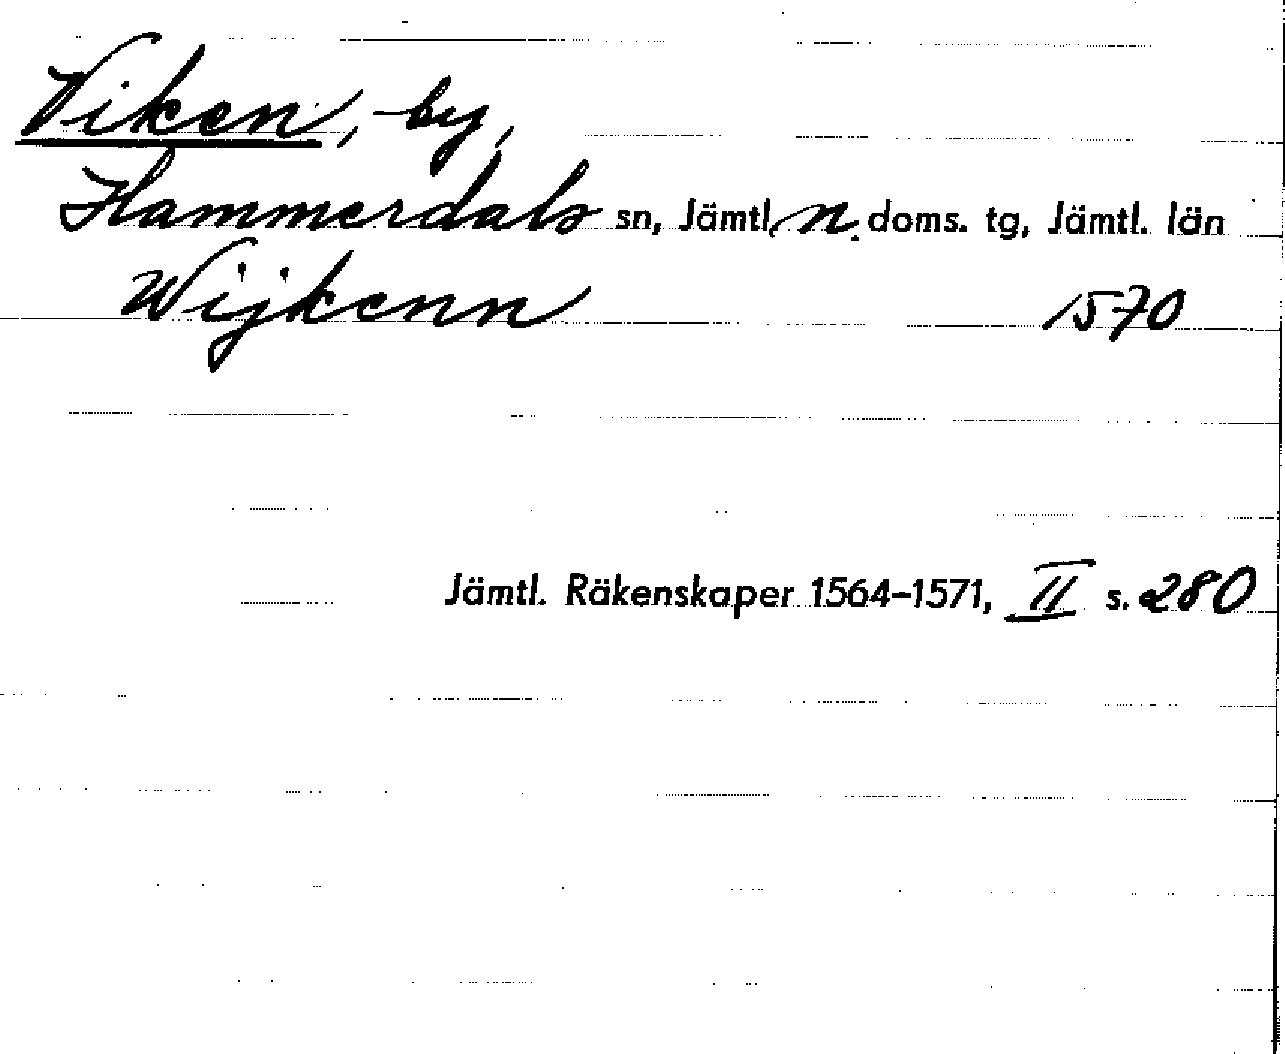 Viken, by,
Hammerdals sn, Jämtl. n. doms. tg, Jämtl. län
Wijkenn 1570
Jämtl. Räkenskaper 1564-1571, II s. 280